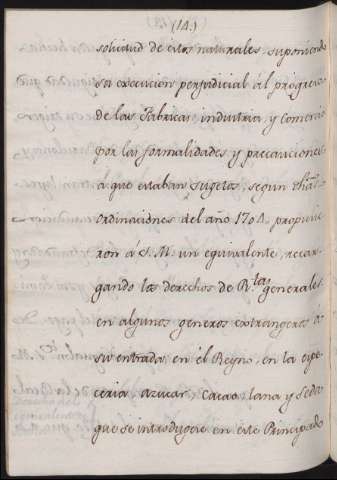 (14.)
solicitud de estos naturales, suponiendo
su execucion perjudicial al progreso
de las Fabricas industria y Comercio
por las formalidades y precauciones
á que estaban sugetas, segun dhas
ordinaciones del año 1704. propusie
ron á S. M. un equivalente, recar-
gando los derechos de Rtas generales
en algunos generos extrangeros a
su entrada en el Reyno, en la espe
ceria azucar, Cacao, lana y Seda
que se introdugere en este Principado